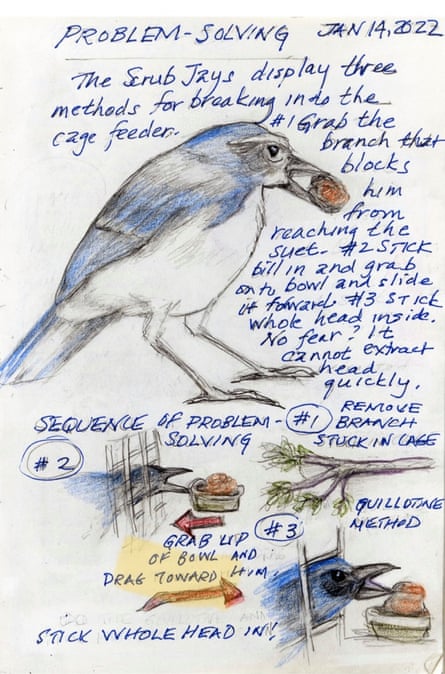 PROBLEM-SOLVING JAN 14, 2022
The Scrub Jays display three
methods for breaking into the
cage feeder. #1 Grab the
branch that
blocks
him
from
reaching the
suet. #2 STICK
bill in and grab
onto bowl and slide
it toward. #3 STICK
whole head inside.
No fear? It
cannot extract
head
quickly.
SEQUENCE OF PROBLEM-
SOLVING
#1 REMOVE
BRANCH
STUCK IN CAGE
#2
GRAB LIP
OF BOWL AND
DRAG TOWARD HIM.
#3
GUILLOTINE
METHOD
STICK WHOLE HEAD IN!